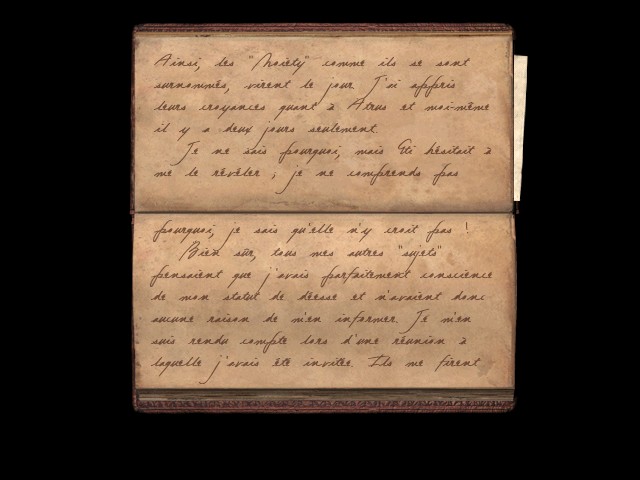 Ainsi, les "Moiety" comme ils se sont
surnommés, virent le jour. J'ai appris
leurs croyances quant à Atrus et moi-même
il y a deux jours seulement.
Je ne sais pourquoi, mais Eti hésitait à
me le révéler ; je ne comprends pas
pourquoi, je sais qu'elle n'y croit pas !
Bien sûr, tous mes autres "sujets"
pensaient que j'avais parfaitement conscience
de mon statut de déesse et n'avaient donc
aucune raison de m'en informer. Je m'en
suis rendu compte lors d'une réunion à
laquelle j'avais été invitée. Ils me firent